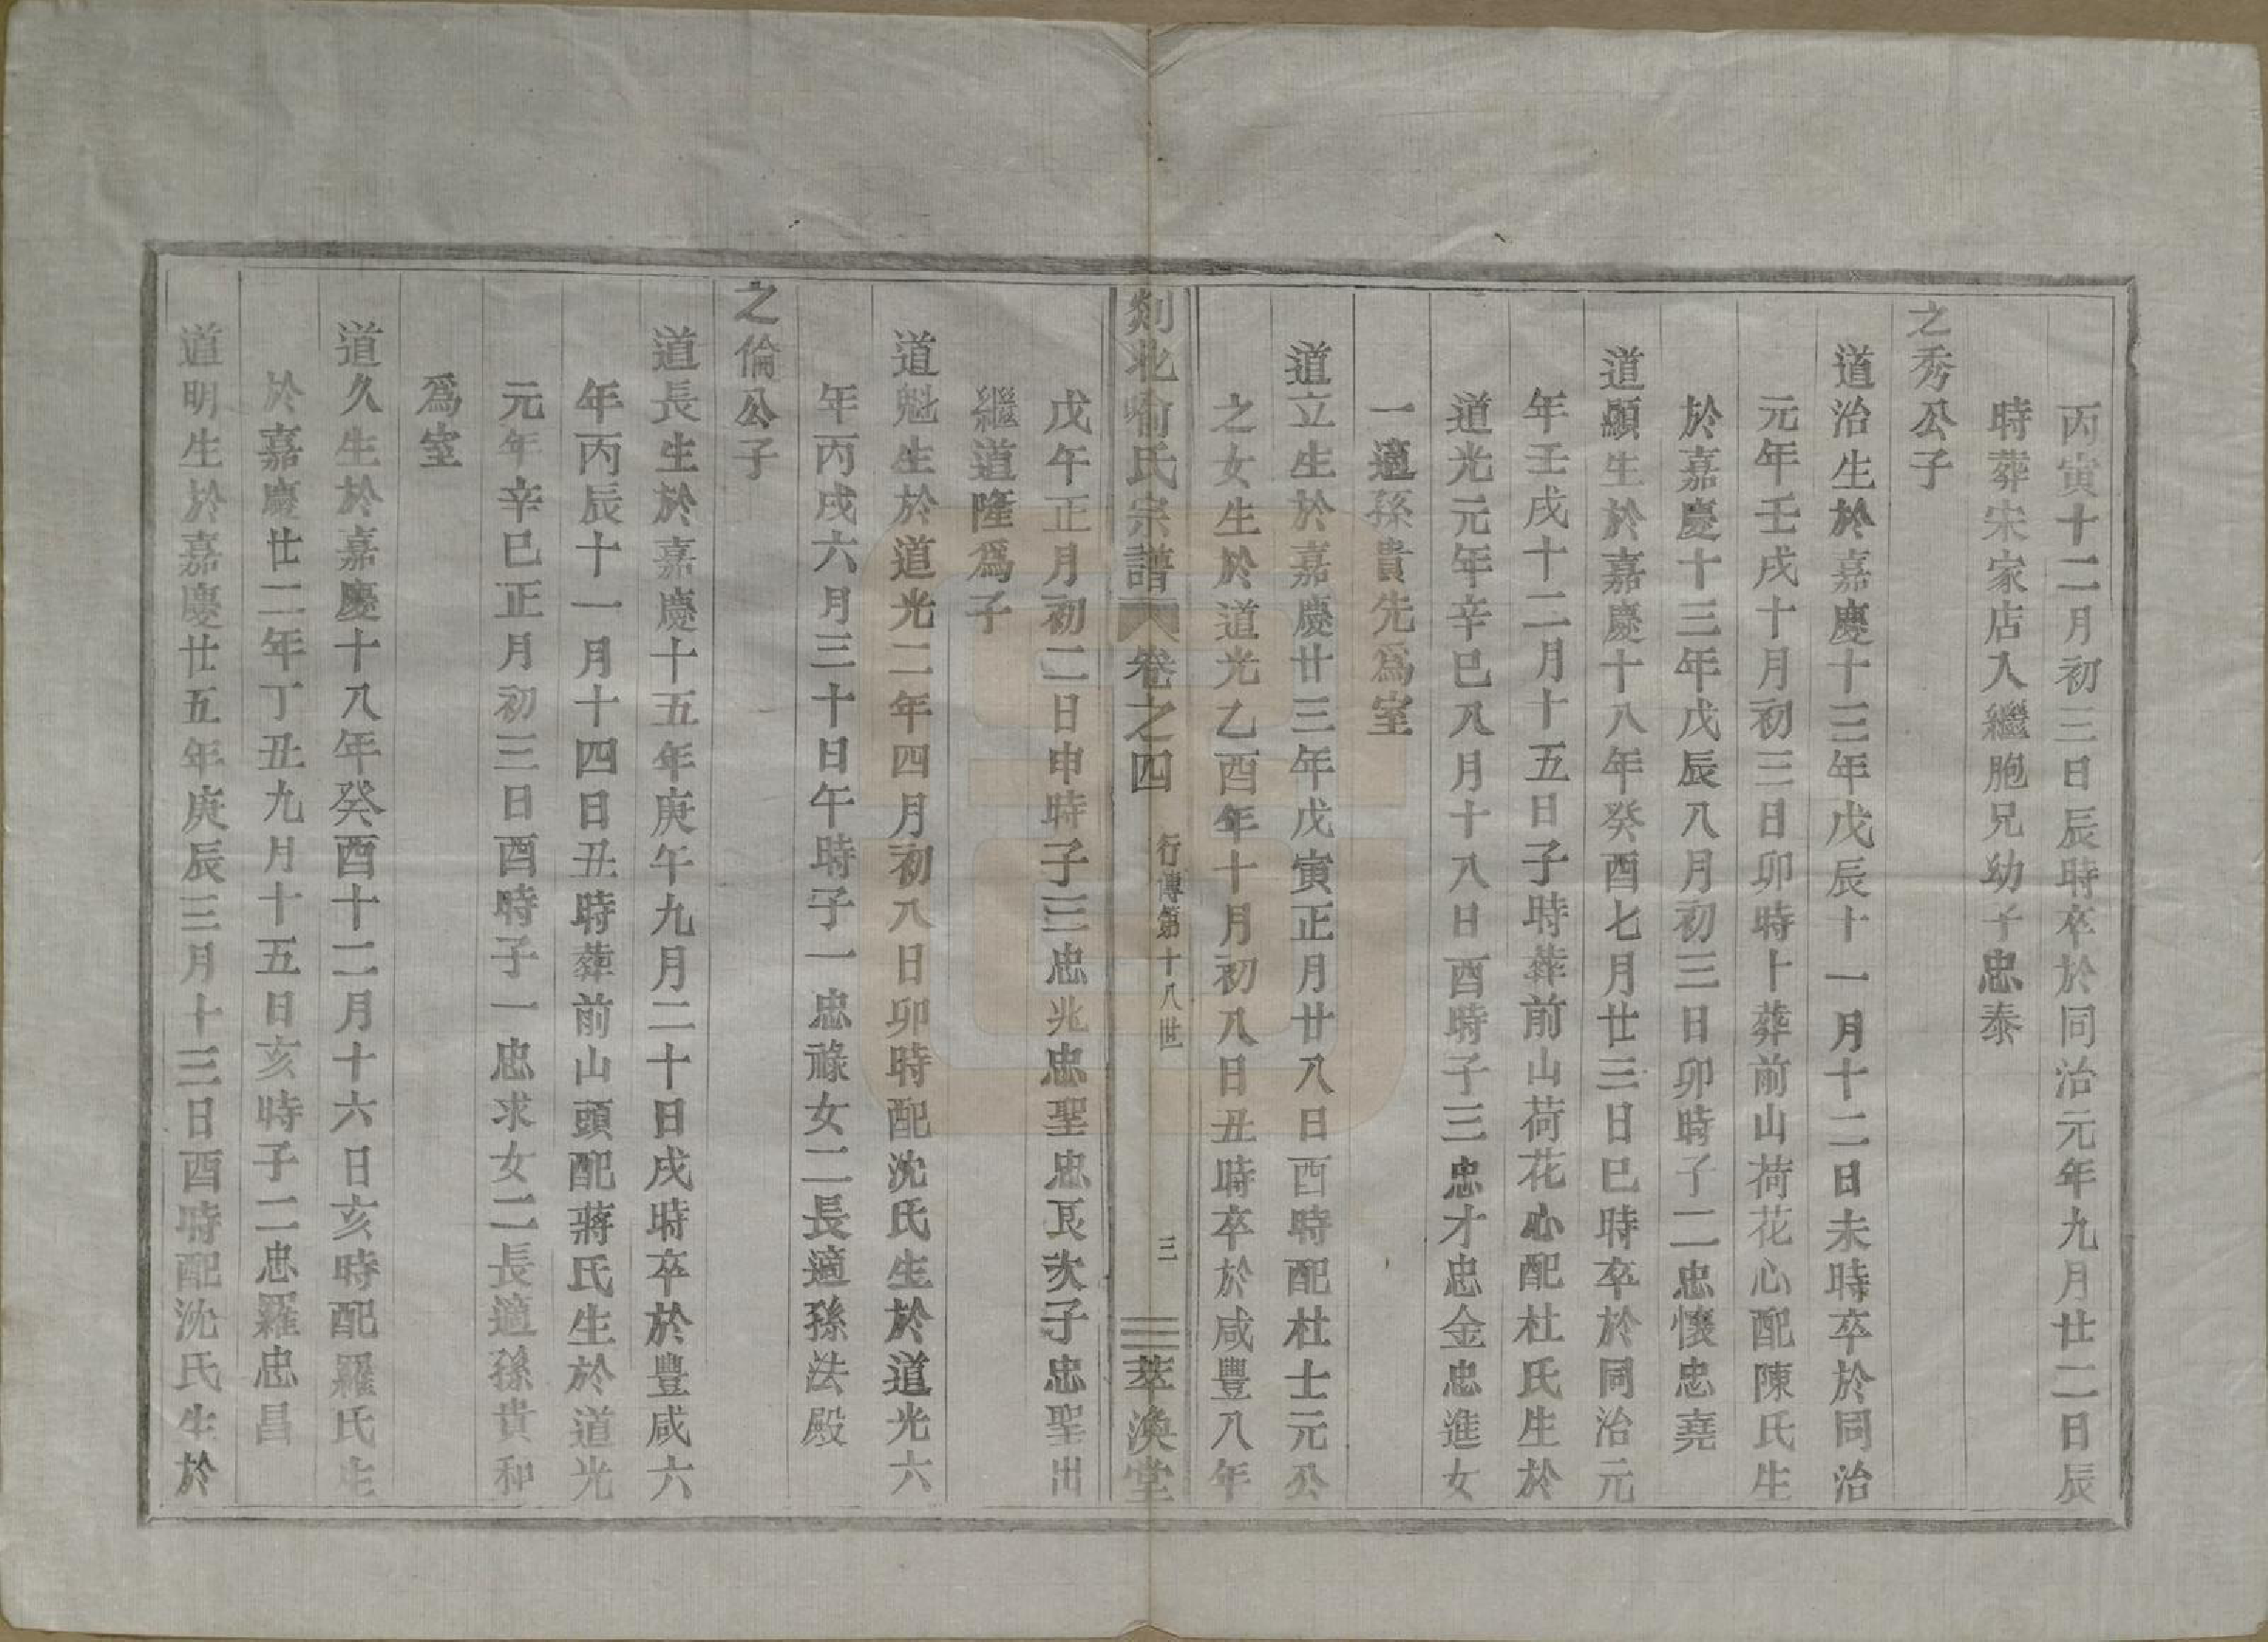 丙寅十二月初三日辰時卒於同治元年九月廿二日辰
時葬宋家店入繼胞兄幼子忠泰
之秀公子
道治生於嘉慶十三年戊辰十一月十二日未時卒於同治
元年壬戌十月初三日卯時十葬前山荷花心配陳氏生
於嘉慶十三年戊辰八月初三日卯時子二忠懷忠堯
道顯生於嘉慶十八年癸酉七月廿三日巳時卒於同治元
年壬戌十二月十五日子時葬前山荷花心配杜氏生於
道光元年辛巳八月十八日酉時子三忠才忠金忠進女
一適孫貴先爲室
道立生於嘉慶廿三年戊寅正月廿八日酉時配杜士元公
之女生於道光乙酉年十月初八日丑時卒於咸豐八年
剡北喻氏宗譜 卷之四 行傳第十八世 三 萃渙堂
戊午正月初二日申時子三忠兆忠聖忠良次子忠聖出
繼道隆爲子
道魁生於道光二年四月初八日卯時配沈氏生於道光六
年丙戌六月三十日午時子一忠祿女二長適孫法殿
之倫公子
道長生於嘉慶十五年庚午九月二十日戌時卒於豐咸六
年丙辰十一月十四日丑時葬前山頭配蔣氏生於道光
元年辛巳正月初三日酉時子一忠求女二長適孫貴和
爲室
道久生於嘉慶十八年癸酉十二月十六日亥時配羅氏生
於嘉慶廿二年丁丑九月十五日亥時子二忠羅忠昌
道明生於嘉慶廿五年庚辰三月十三日酉時配沈氏生於